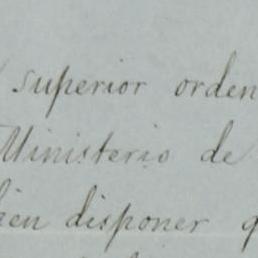 superior orden
Ministerio de
bien disponer q